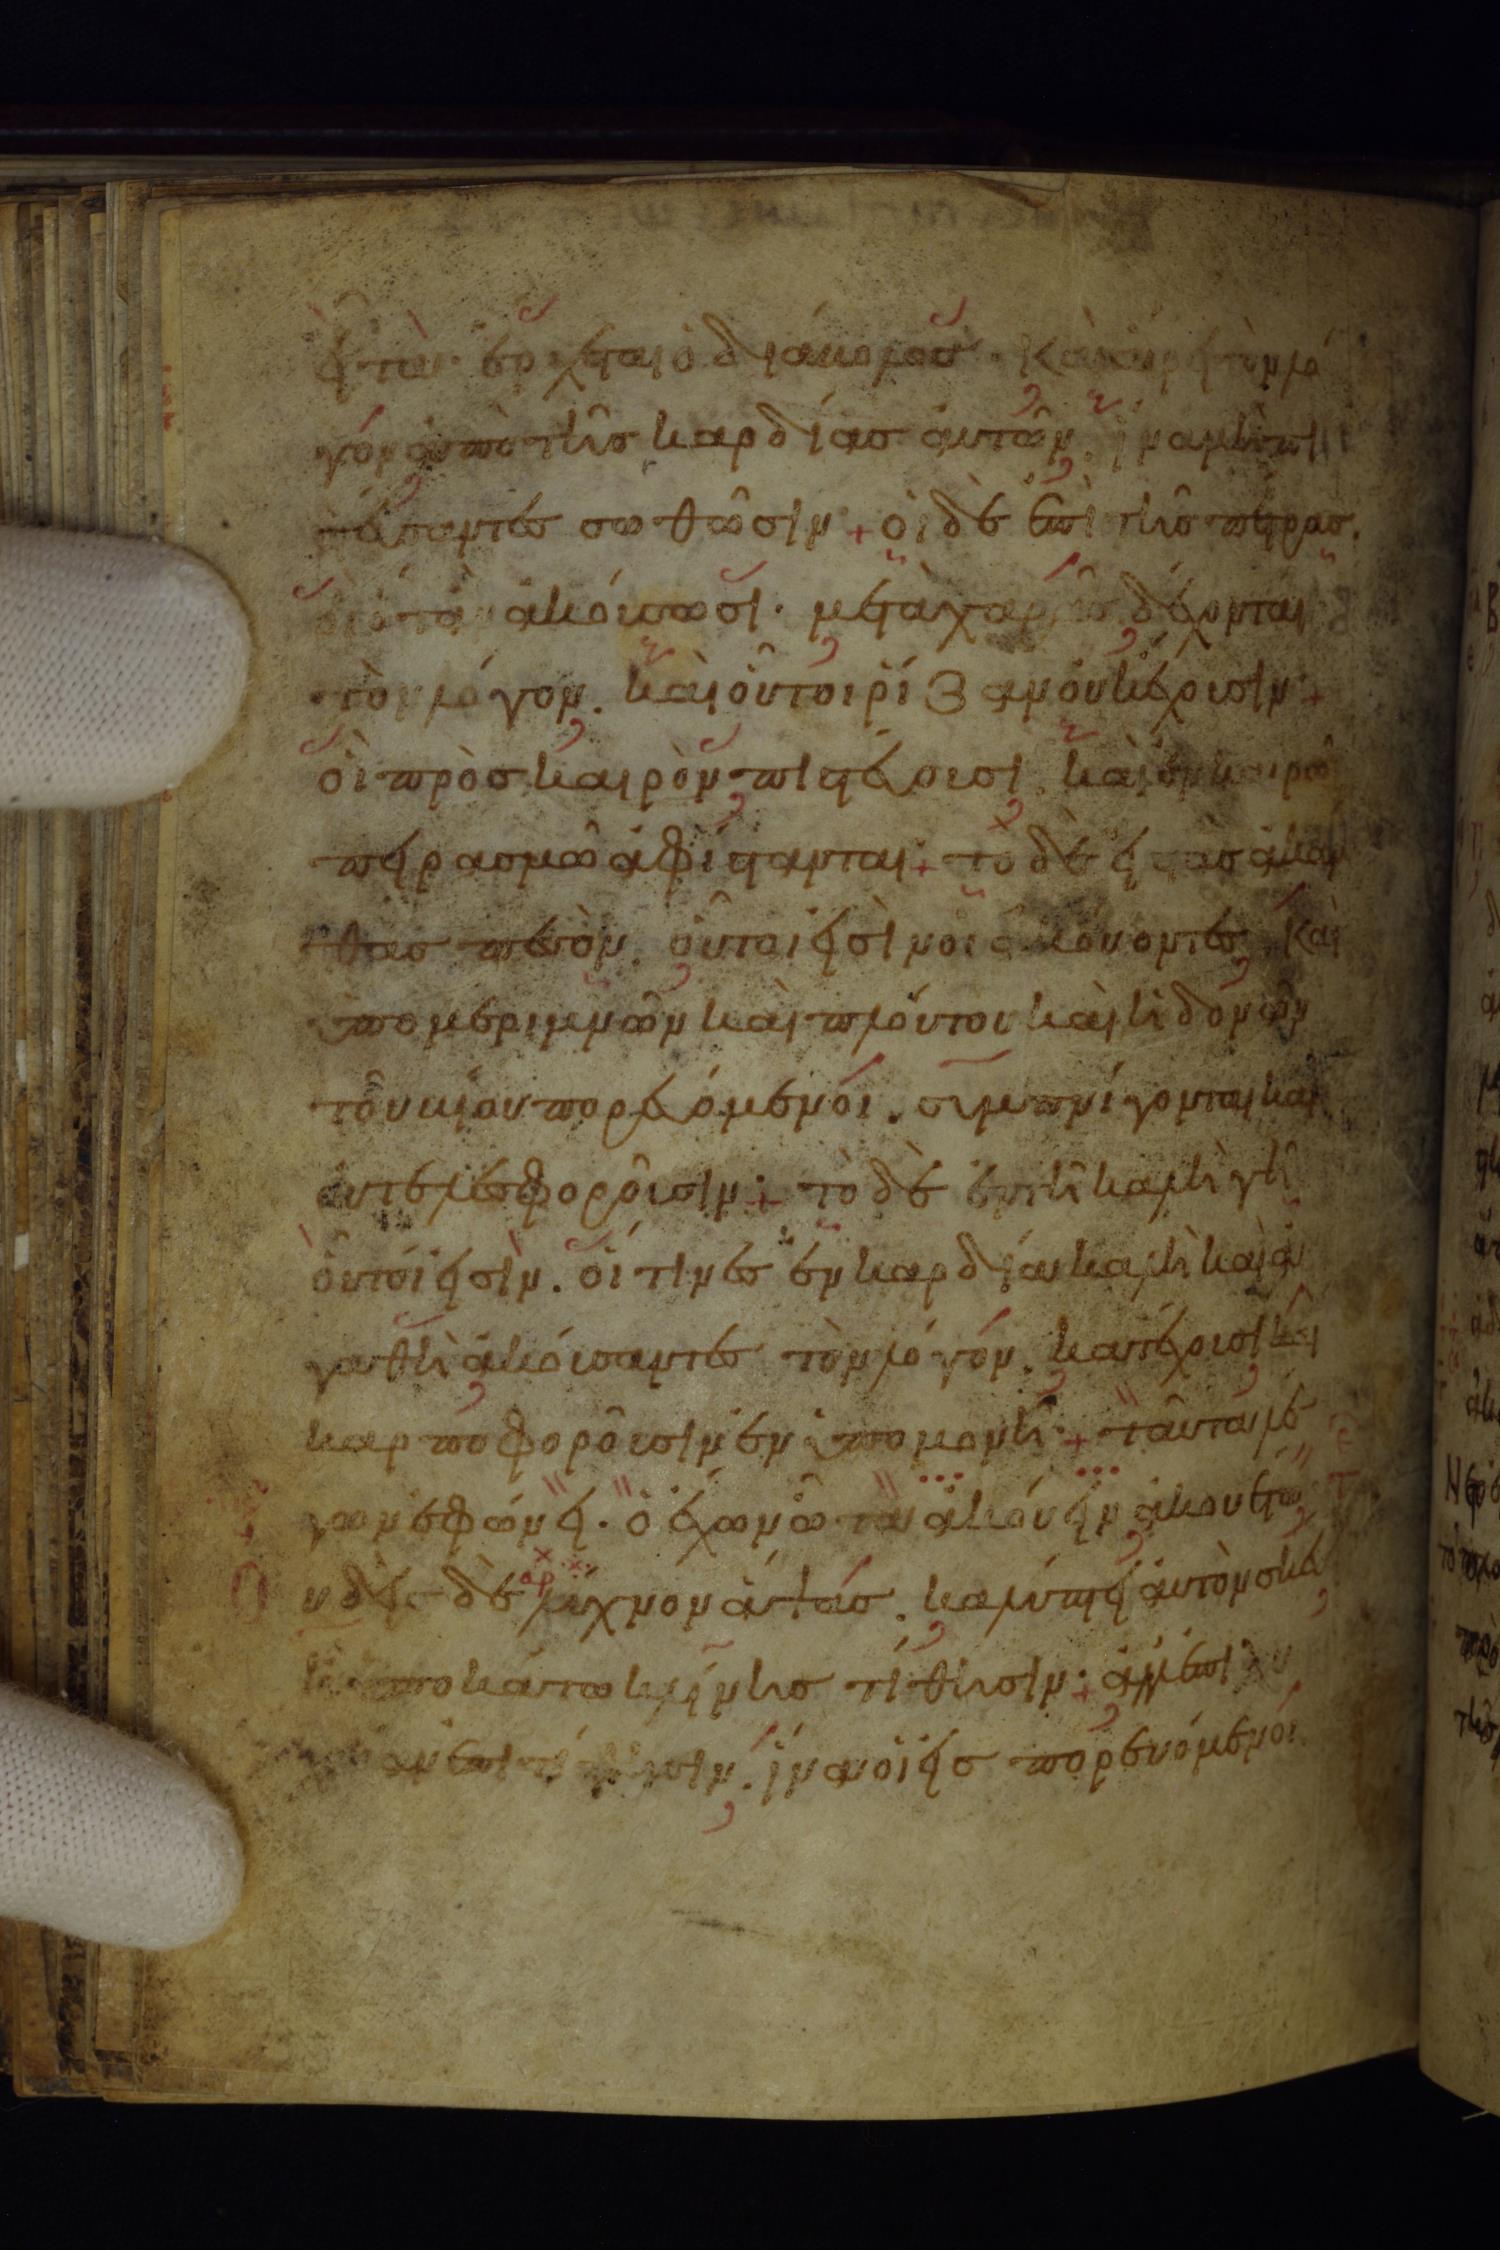 εἶτα ἔρχεται ὁ διάκολοσ. καὶ αἴρει τὸν λό
γον ἀπὸ τῆσ καρδίασ αὐτῶν. ἵνα μὴ πι
στεύσαντεσ σωθῶσιν + οἱ δὲ ἐπὶ τῆσ πέτρασ.
οἳ ὅταν ἀκούσωσι. μετὰ χαρᾶσ δέχονται
τὸν λόγον. καὶ οὗτοι ρίζαν οὐκ ἔχουσιν +
οἳ πρὸσ καιρὸν πιστεύουσι. καὶ ἐν καιρῶ
πειρασμοῦ ἀφίστανται + τὸ δὲ εἰς τὰσ ἀκάν
θασ πεσὸν. οὗτοι εἰσὶν οἱ ἀκούοντεσ καὶ
ὑπὸ μεριμνῶν καὶ πλούτου καὶ ἡδονῶν
τοῦ βίου πορευόμενοι. συμπνίγονται καὶ
οὐ τελεσφοροῦσιν + τὸ δὲ ἐν τῆ καλῆ γῆ
οὗτοί εἰσιν. οἵτινεσ ἐν καρδία καλῆ καὶ ἀ
γαθῆ ἀκούσαντεσ τὸν λόγον. κατέχουσι καὶ
καρποφοροῦσιν ἐν ὑπομονῆ + ταῦτα λέ
γων ἐφώνει. ὁ ἔχων ὦτα ἀκούειν ἀκουέτω
οὐδεὶσ δὲ λύχνον ἅψασ. καλύπτει αὐτὸν σκεύ
ει ἢ ὑποκάτω κλίνησ τίθησιν + ἀλλ' ἐπὶ λυ
χνίαν ἐπιτίθησιν. ἵνα οἱ εἰσπορευόμενοι